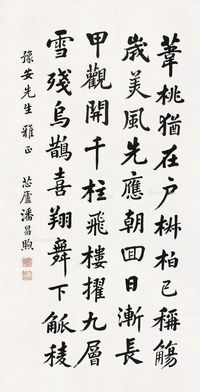 葦桃猶在戶椒柏已稱觴
歲美風先應朝回日漸長
甲觀開千柱飛樓擢九層
雪殘烏鵲喜翔舞下觚稜
豫安先生雅正
芯廬潘昌煦